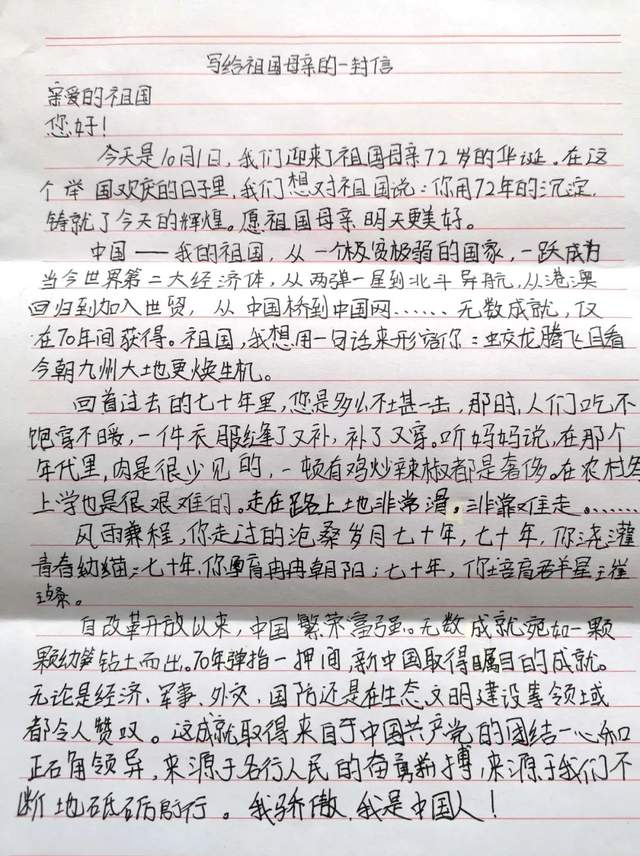 写给祖国母亲的一封信
亲爱的祖国
您好!
今天是10月1日,我们迎来了祖国母亲72岁的华诞。在这
个举国欢庆的日子里,我们想对祖国说:你用72年的沉淀,
铸就了今天的辉煌。愿祖国母亲明天更美好。
中国——我的祖国,从一个极贫极弱的国家,一跃成为
当今世界第二大经济体,从两弹一星到北斗导航,从港澳
回归到加入世贸,从中国桥到中国网……无数成就,仅
在70年间获得。祖国,我想用一句话来形容你:蛟龙腾飞目看
今朝九州大地更焕生机。
回首过去的七十年里,您是多么不堪一击,那时,人们吃不
饱穿不暖,一件衣服缝了又补,补了又穿。听妈妈说,在那个
年代里,肉是很少见的,一顿有鸡炒辣椒都是奢侈。在农村
上学也是很艰难的。走在路上地非常滑。非常难走。……
风雨兼程,你走过的沧桑岁月七十年,七十年,你浇灌
青春幼苗;七十年,你孕育冉冉朝阳;七十年,你培育群星璀
璨。
自改革开放以来,中国繁荣富强。无数成就宛如一颗
颗幼笋钻土而出。70年弹指一挥间,新中国取得瞩目的成就。
无论是经济、军事、外交、国防还是在生态文明建设等领域
都令人赞叹。这成就取得来自于中国共产党的团结一心和
正确领导,来源于各行人民的奋勇拼搏,来源于我们不
断地砥砺前行。我骄傲,我是中国人!